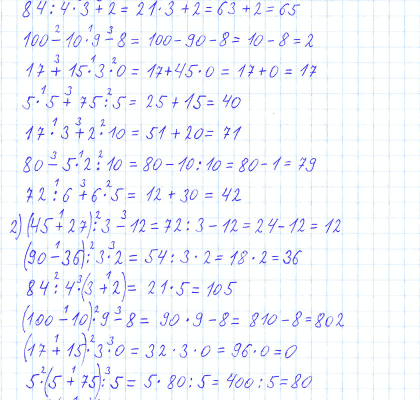 84 : 4 · 3 + 2 = 21 · 3 + 2 = 63 + 2 = 65
100 - 10 · 9 - 8 = 100 - 90 - 8 = 10 - 8 = 2
17 + 15 · 3 · 0 = 17 + 45 · 0 = 17 + 0 = 17
5 · 5 + 75 : 5 = 25 + 15 = 40
17 · 3 + 2 · 10 = 51 + 20 = 71
80 - 5 · 2 : 10 = 80 - 10 : 10 = 80 - 1 = 79
72 : 6 + 6 · 5 = 12 + 30 = 42
2) (45 + 27) : 3 - 12 = 72 : 3 - 12 = 24 - 12 = 12
(90 - 36) : 3 · 2 = 54 : 3 · 2 = 18 · 2 = 36
84 : 4 · (3 + 2) = 21 · 5 = 105
(100 - 10) · 9 - 8 = 90 · 9 - 8 = 810 - 8 = 802
(17 + 15) · 3 · 0 = 32 · 3 · 0 = 96 · 0 = 0
5 · (5 + 75) : 5 = 5 · 80 : 5 = 400 : 5 = 80